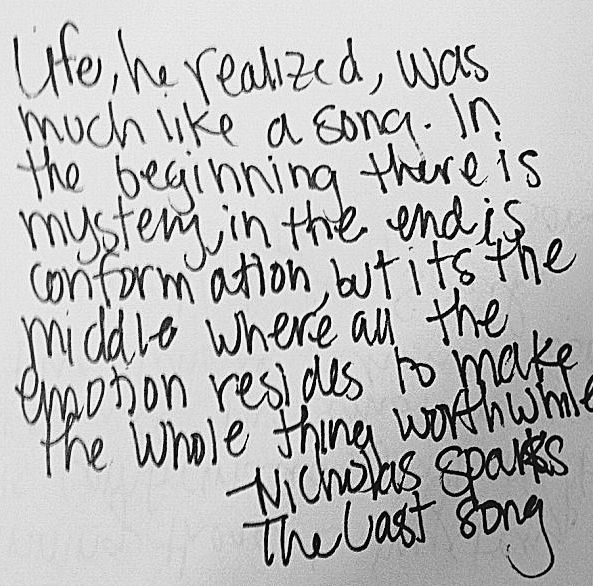 Life, he realized, was
much like a song. In
the beginning there is
mystery, in the end is
conformation, but its the
middle where all the
emotion resides to make
the whole thing worthwhile
-Nicholas Sparks
The Last Song